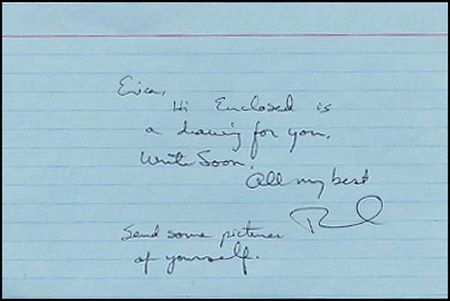 Erica,
Hi Enclosed is
a drawing for you.
Write Soon.
All my best
Send some pictures
of yourself.